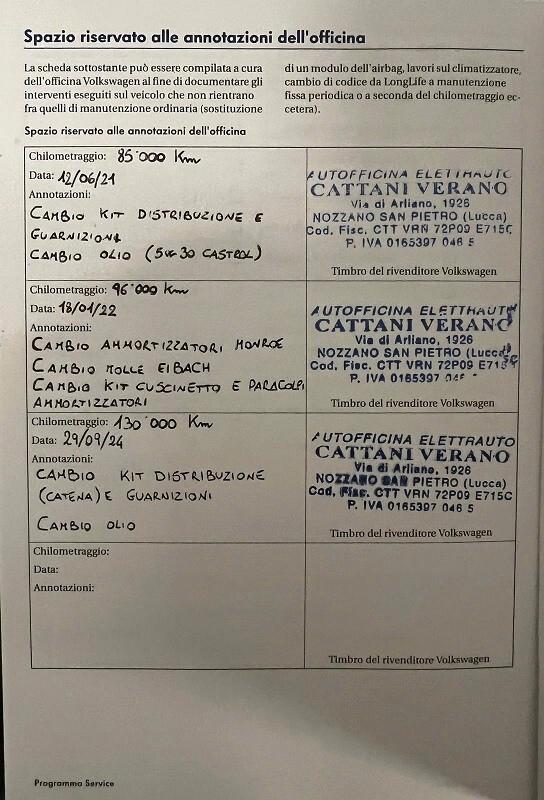 Spazio riservato alle annotazioni dell'officina
La scheda sottostante può essere compilata a cura
dell'officina Volkswagen al fine di documentare gli
interventi eseguiti sul veicolo che non rientrano
fra quelli di manutenzione ordinaria (sostituzione
di un modulo dell'airbag, lavori sul climatizzatore,
cambio di codice da LongLife a manutenzione
fissa periodica o a seconda del chilometraggio ec-
cetera).
Spazio riservato alle annotazioni dell'officina
Chilometraggio: 85'000 Km
Data: 12/06/21
Annotazioni:
CAMBIO KIT DISTRIBUZIONE E
GUARNIZIONI
CAMBIO OLIO (5W30 CASTROL)
AUTOFFICINA ELETTRAUTO
CATTANI VERANO
Via di Arliano, 1926
NOZZANO SAN PIETRO (Lucca)
Cod. Fisc. CTT VRN 72P09 E715C
P. IVA 0165397 046 5
Timbro del rivenditore Volkswagen
Chilometraggio: 96'000 Km
Data: 18/01/22
Annotazioni:
CAMBIO AMMORTIZZATORI MONROE
CAMBIO MOLLE EIBACH
CAMBIO KIT CUSCINETTO E PARACOLPI
AMMORTIZZATORI
AUTOFFICINA ELETTRAUTO
CATTANI VERANO
Via di Arliano, 1926
NOZZANO SAN PIETRO (Lucca)
Cod. Fisc. CTT VRN 72P09
P. IVA 0165397
Timbro del rivenditore Volkswagen
Chilometraggio: 130'000 Km
Data: 29/09/24
Annotazioni:
CAMBIO KIT DISTRIBUZIONE
(CATENA) E GUARNIZIONI
CAMBIO OLIO
AUTOFFICINA ELETTRAUTO
CATTANI VERANO
Via di Arliano, 1926
NOZZANO SAN PIETRO (Lucca)
Cod. Fisc. CTT VRN 72P09 E715C
P. IVA 0165397 046 5
Timbro del rivenditore Volkswagen
Chilometraggio:
Data:
Annotazioni:
Timbro del rivenditore Volkswagen
Programma Service